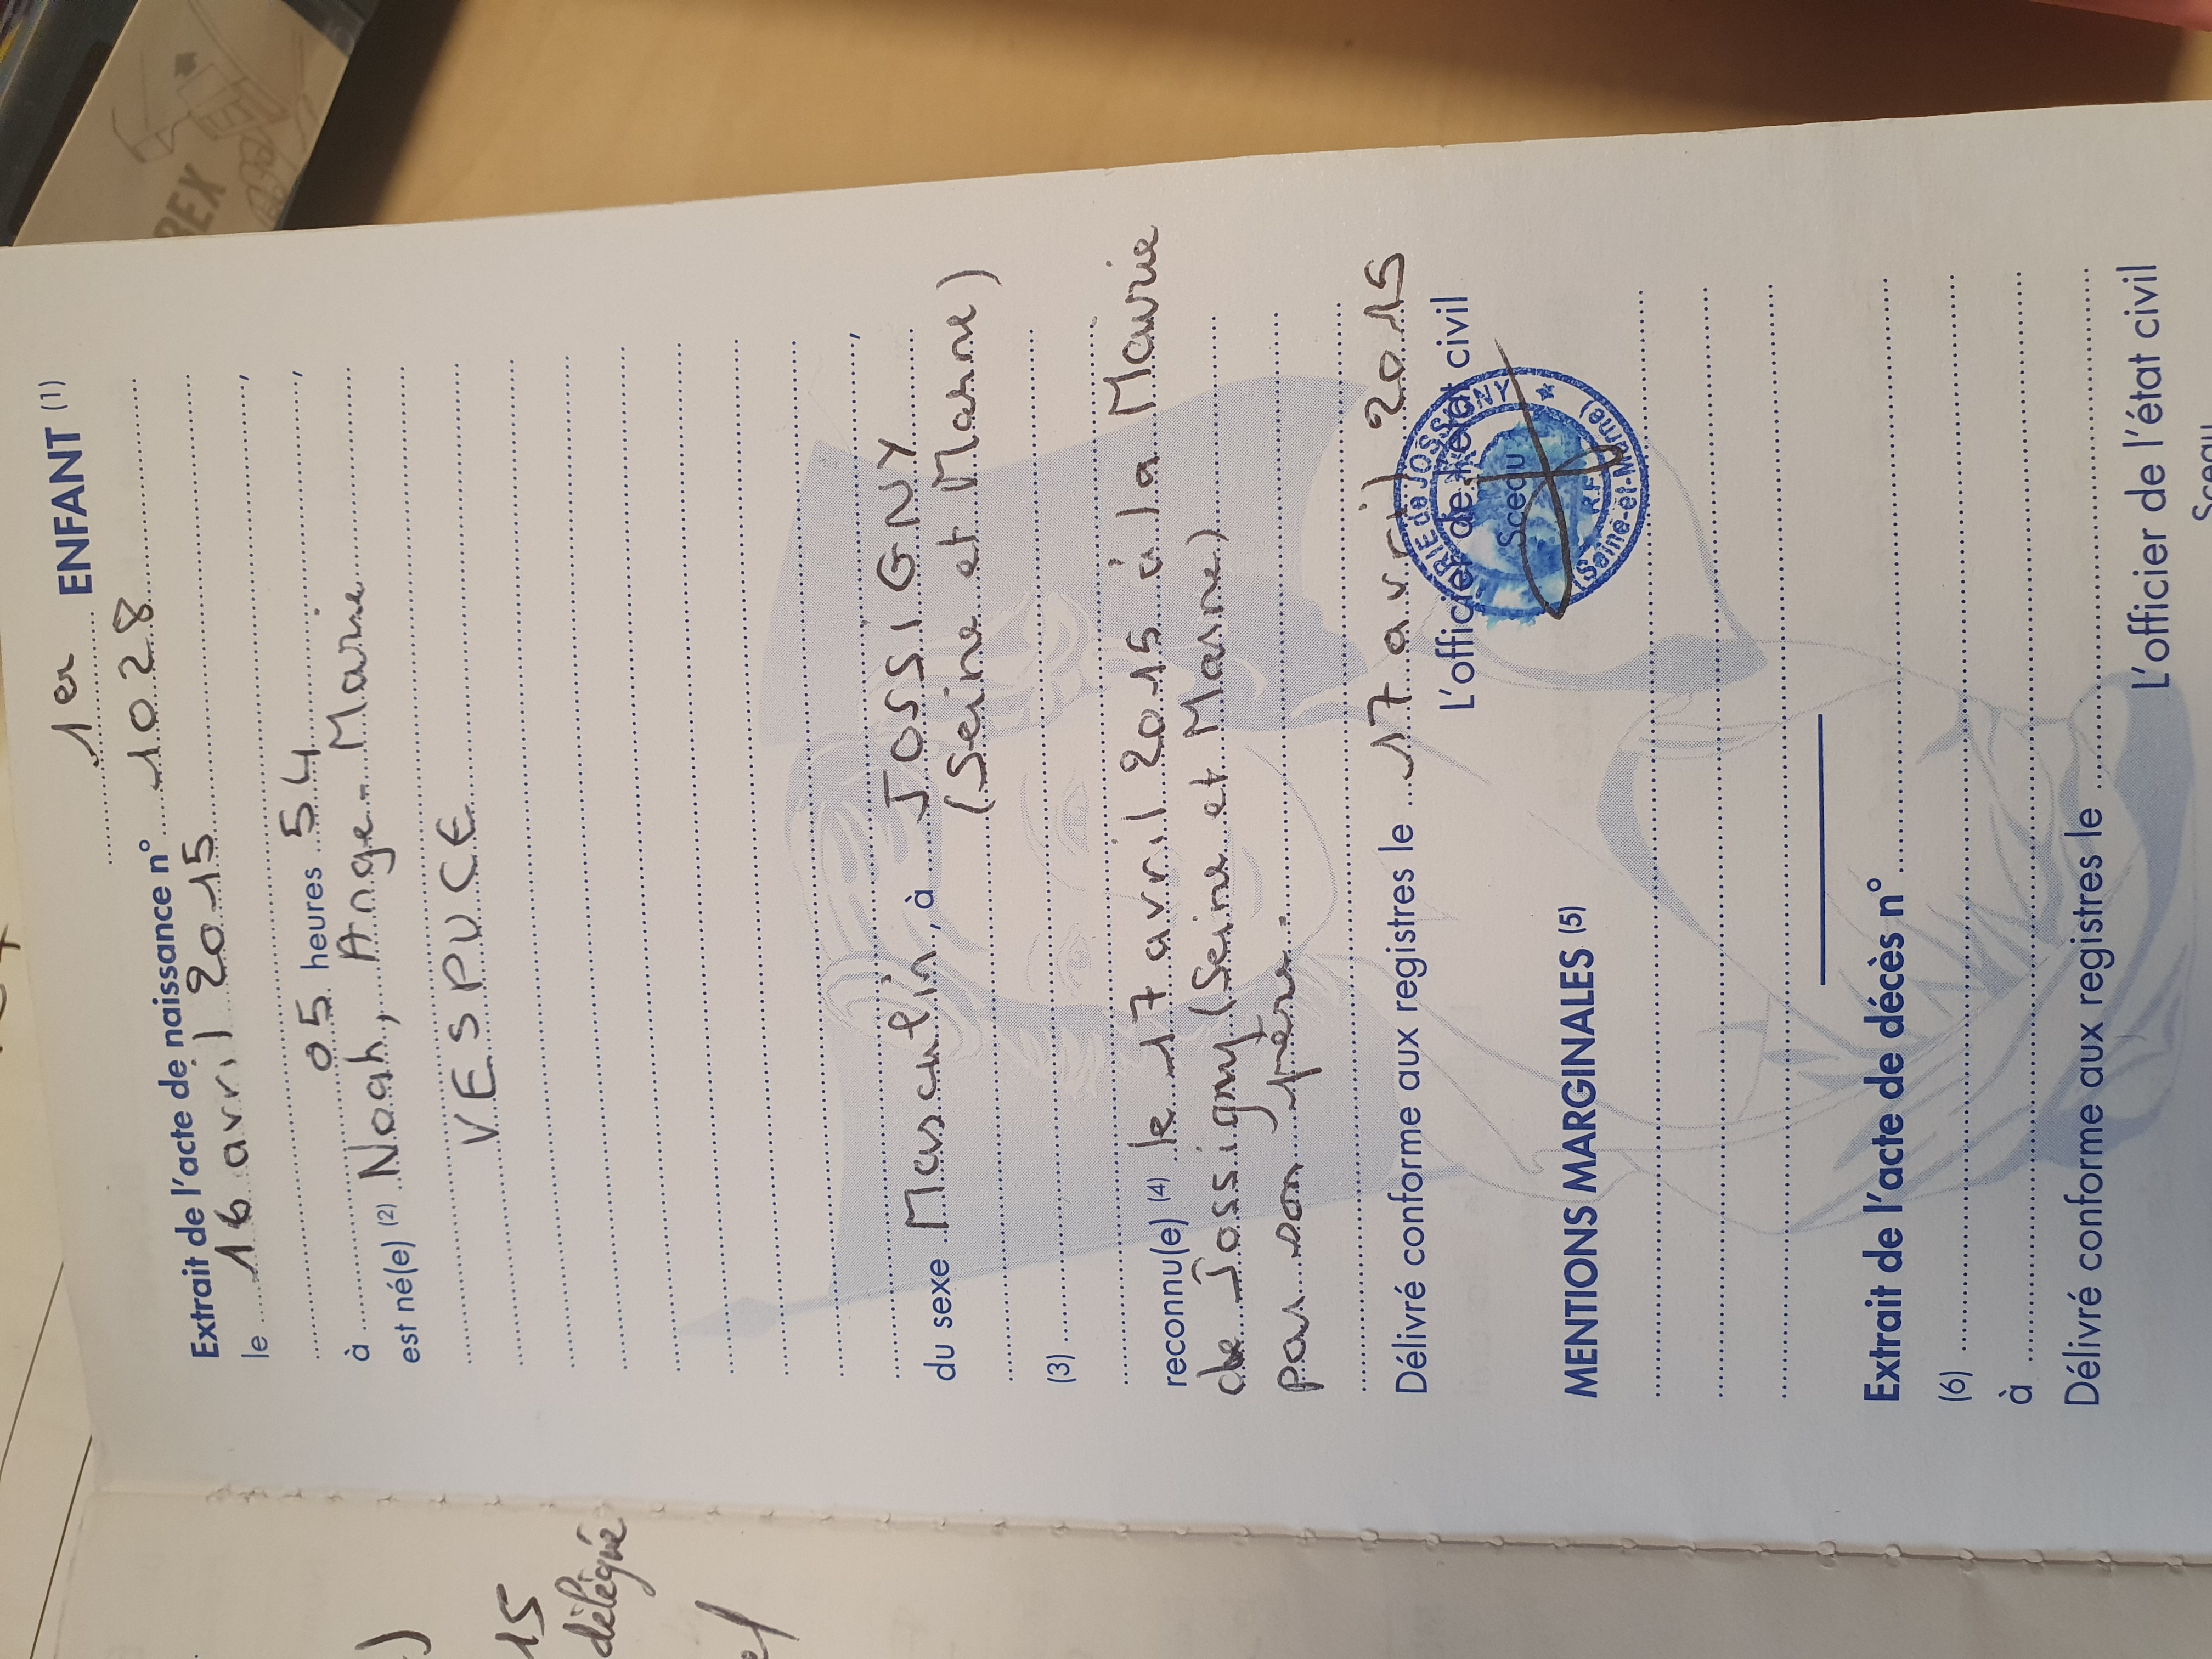 1er ENFANT (1)
Extrait de l'acte de naissance n° 1028
le 16 avril 2015
,
à 05 heures 54,
est né(e) (2) Noah, Ange-Marie
VESPUCE
,
du sexe Masculin, à JOSSIGNY
(Seine et Marne)
(3)
reconnu(e) (4) le 17 avril 2015 à la Mairie
de Jossigny (Seine et Marne)
par son père.
Délivré conforme aux registres le 17 avril 2015
L'officier de l'état civil
Sceau
MAIRIE de JOSSIGNY
R.F
(Seine-et-Marne)
MENTIONS MARGINALES (5)
Extrait de l'acte de décès n°
(6)
à
Délivré conforme aux registres le
L'officier de l'état civil
Sceau
15
délégué
BEX